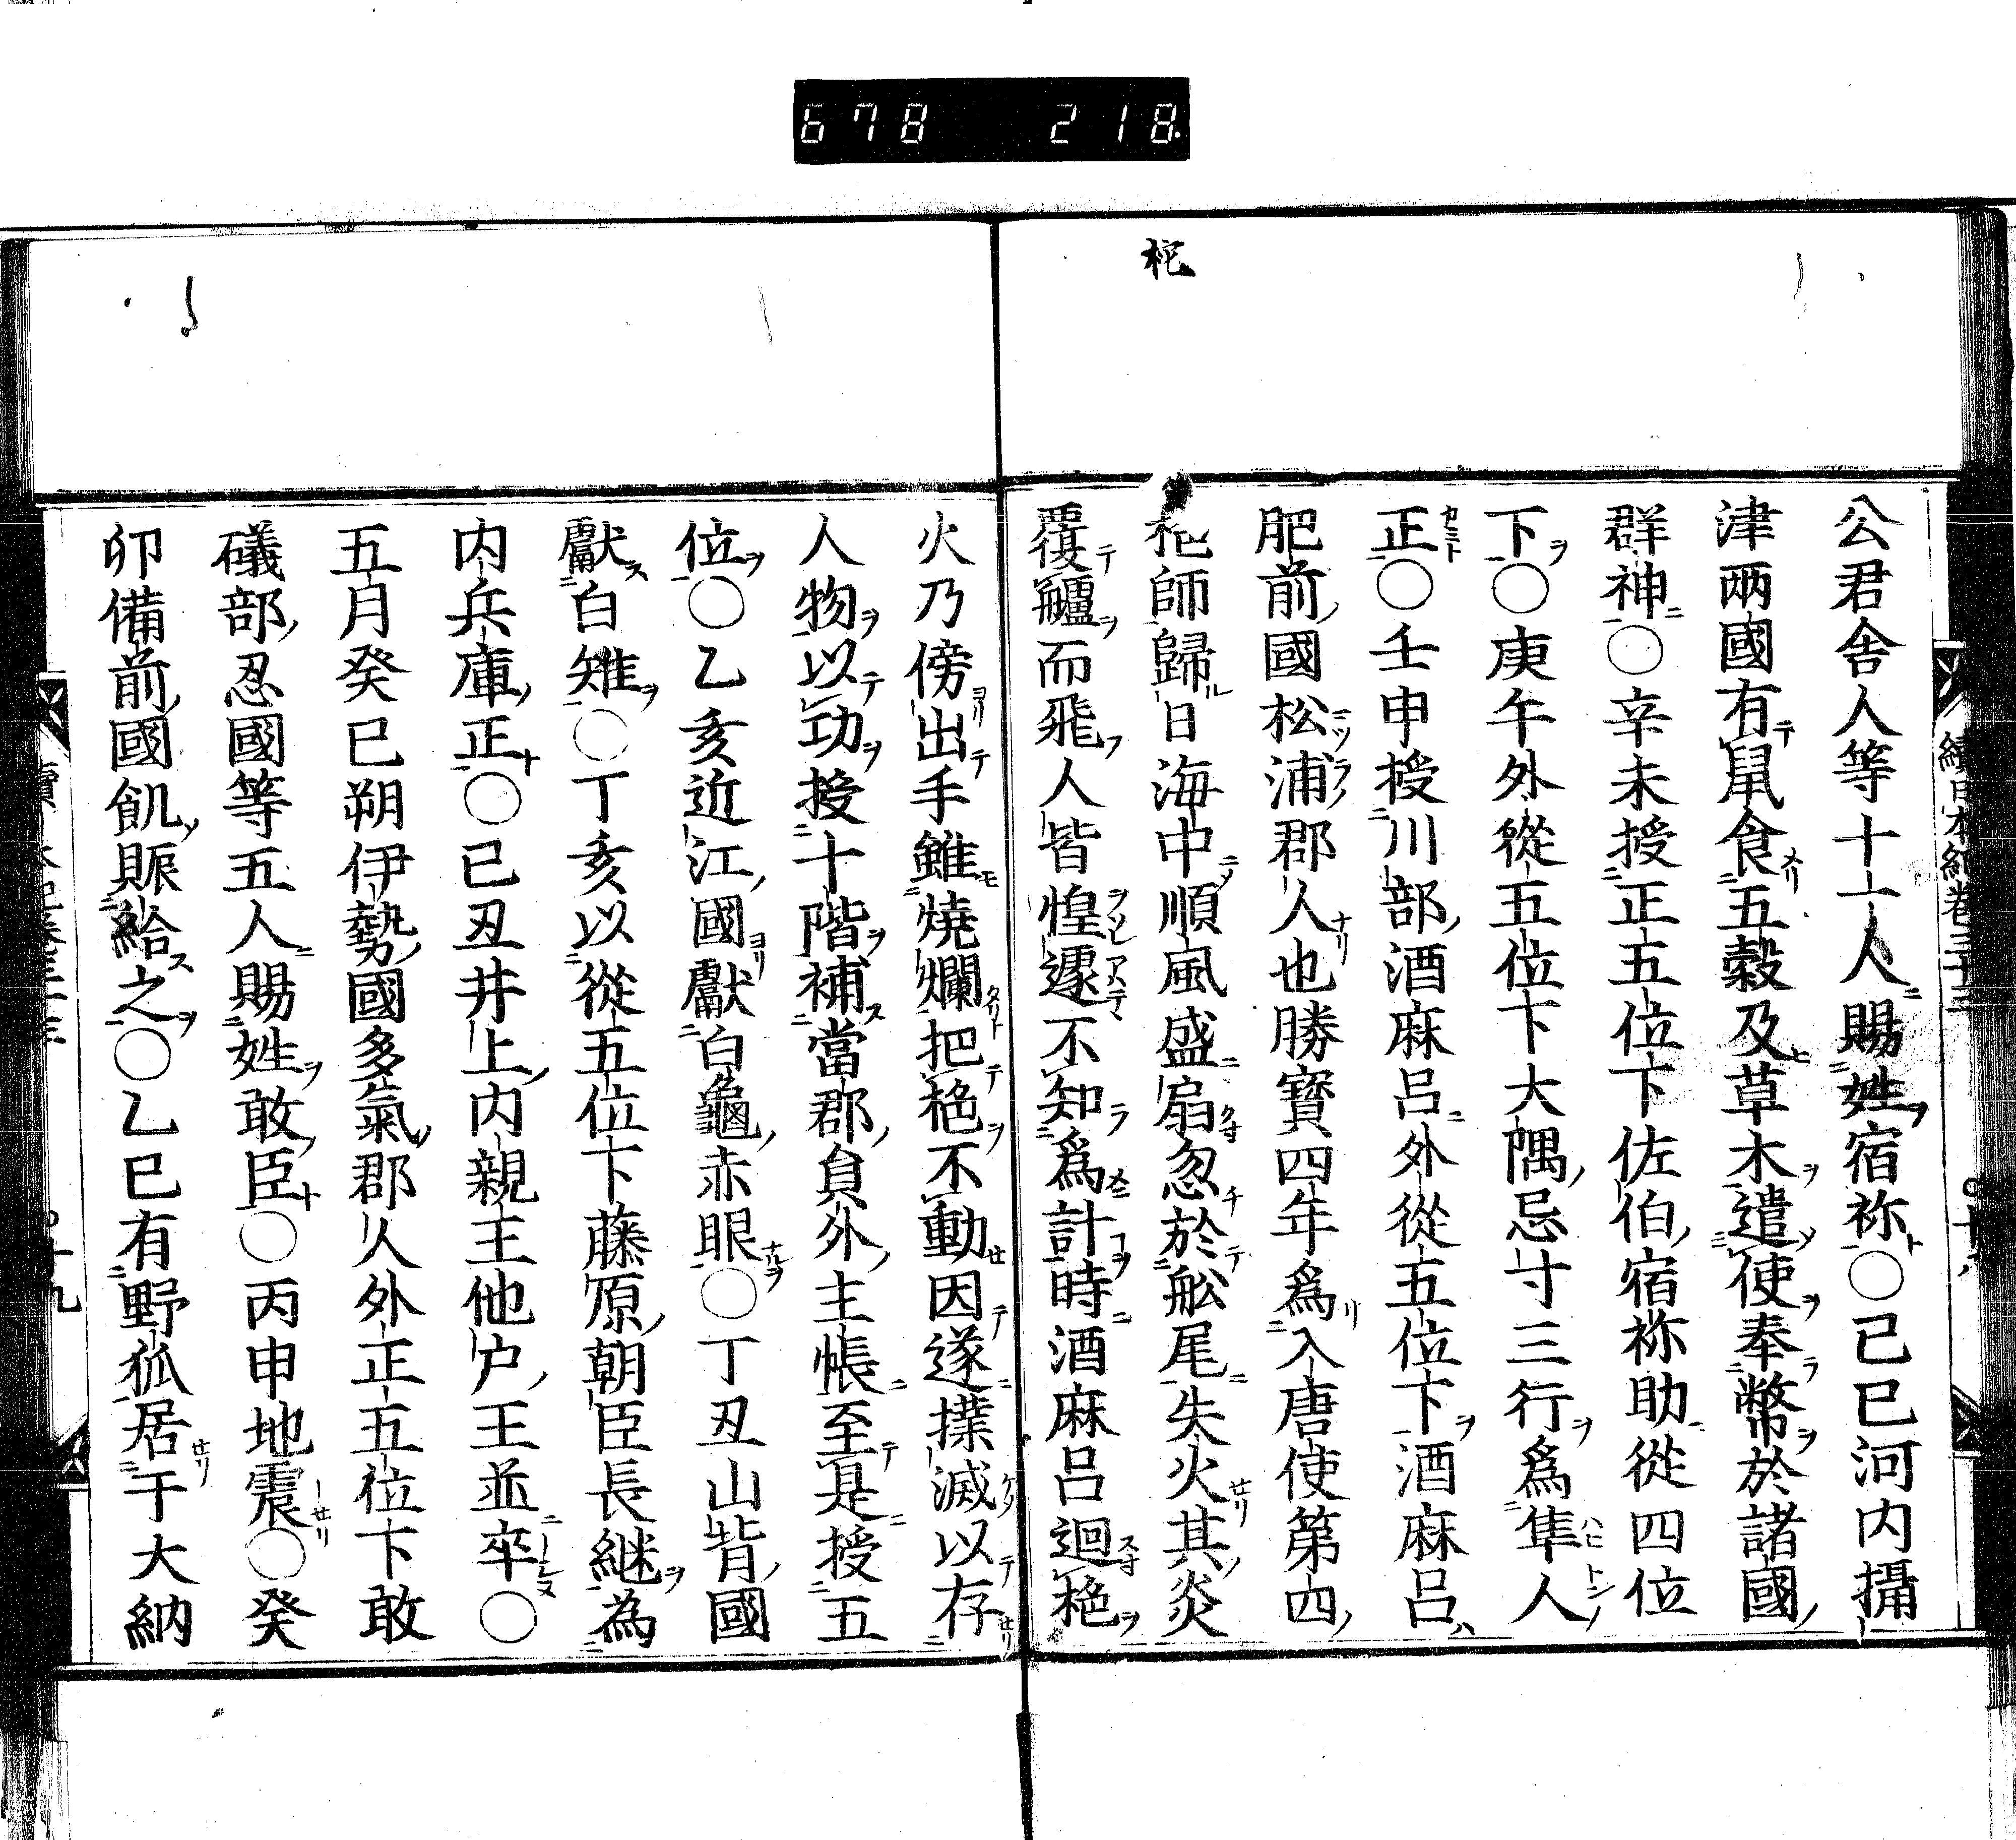 678 218
柁
公君舎人等十一人賜姓宿祢○己巳河内攝
津兩國有鼠食五穀及草木遣使奉幣於諸國
群神○辛未授正五位下佐伯宿祢助從四位
下○庚午外從五位下大隅忌寸三行爲隼人
正○壬申授川部酒麻呂外從五位下酒麻呂
肥前國松浦郡人也勝寳四年爲入唐使第四
柂師歸日海中順風盛扇忽於舩尾失火其炎
覆艫而飛人皆惶遽不知爲計時酒麻呂迴柂
火乃傍出手雖燒爛把柂不動因遂撲滅以存
人物以功授十階補當郡員外主帳至是授五
位○乙亥近江國獻白龜赤眼○丁丑山背國
獻白雉○丁亥以從五位下藤原朝臣長継為
内兵庫正○己丑井上内親王他户王並卒○
五月癸巳朔伊勢國多氣郡人外正五位下敢
礒部忍國等五人賜姓敢臣○丙申地震○癸
卯備前國飢賑給之○乙巳有野狐居于大納